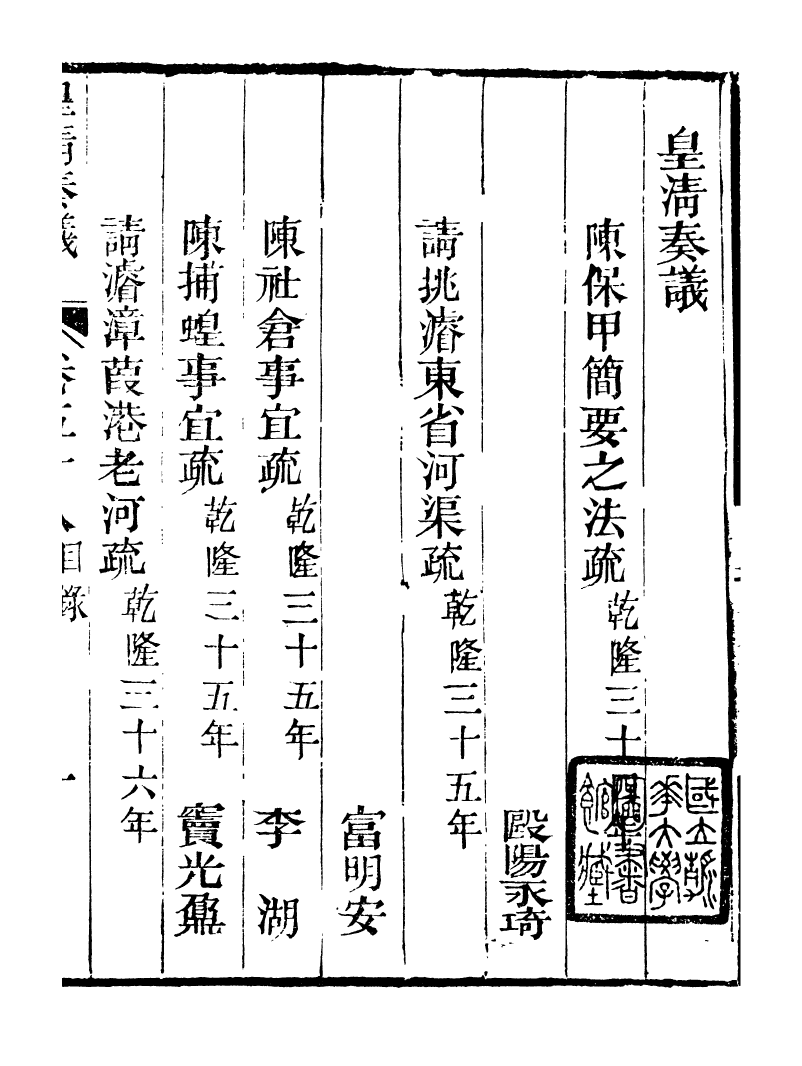 皇清奏議
陳保甲簡要之法疏 乾隆三十
歐陽永琦
請挑濬東省河渠疏 乾隆三十五年
富明安
陳社倉事宜疏 乾隆三十五年 李 湖
陳捕蝗事宜疏 乾隆三十五年 竇光鼐
請濬漳葭港老河疏 乾隆三十六年
皇清奏議 卷五十八目錄 一